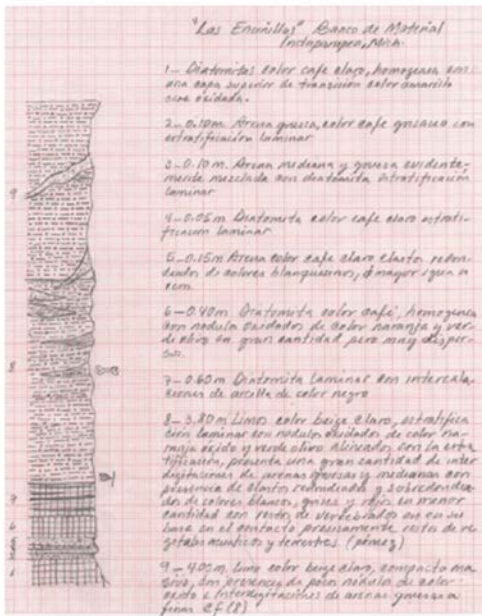 "Las Encinillas" Banco de Material
Indaparapeo, Mich.
1- Diatomitas color cafe claro, homogenea con
una capa superior de transición color amarillo
ocre oxidada.
2-0.10m Arena gruesa, color cafe grisaceo con
estratificación laminar
3-0.10m Arena mediana y gruesa evidente-
mente mezclada con diatomita estratificación
laminar
4-0.05m Diatomita color cafe claro estrati-
ficacion laminar
5-0.15m Arena color cafe claro clastos redon-
deados de colores blanquesinos, ø mayor igual a
cm.
6-0.40m Diatomita color café, homogenea
con nodulo oxidados de color naranja y ver-
de olivo en gran cantidad pero muy disper-
sos.
7-0.60m Diatomita laminar con intercala-
ciones de arcilla de color negro
8-3.80m Limos color beige claro, estratifica
ción laminar con nodulos oxidados de color na-
ranja óxido y verde olivo alineados con la estra
tificación, presenta una gran cantidad de inter
digitaciones de arenas gruesas y medianas con
presencia de clastos redondeados y subredondea-
dos de colores blancos, grises y rojos en menor
cantidad con restos de vertebrados en su
base en el contacto restos de ve
getales acuaticos y terrestres (pómez)
9-4.00m Limo color beige claro, compacto ma
sivo, con presencia de poco nodulo de color
oxido e interdigitaciones de arenas gruesas a
finas Cf(8)
9
8
7
6